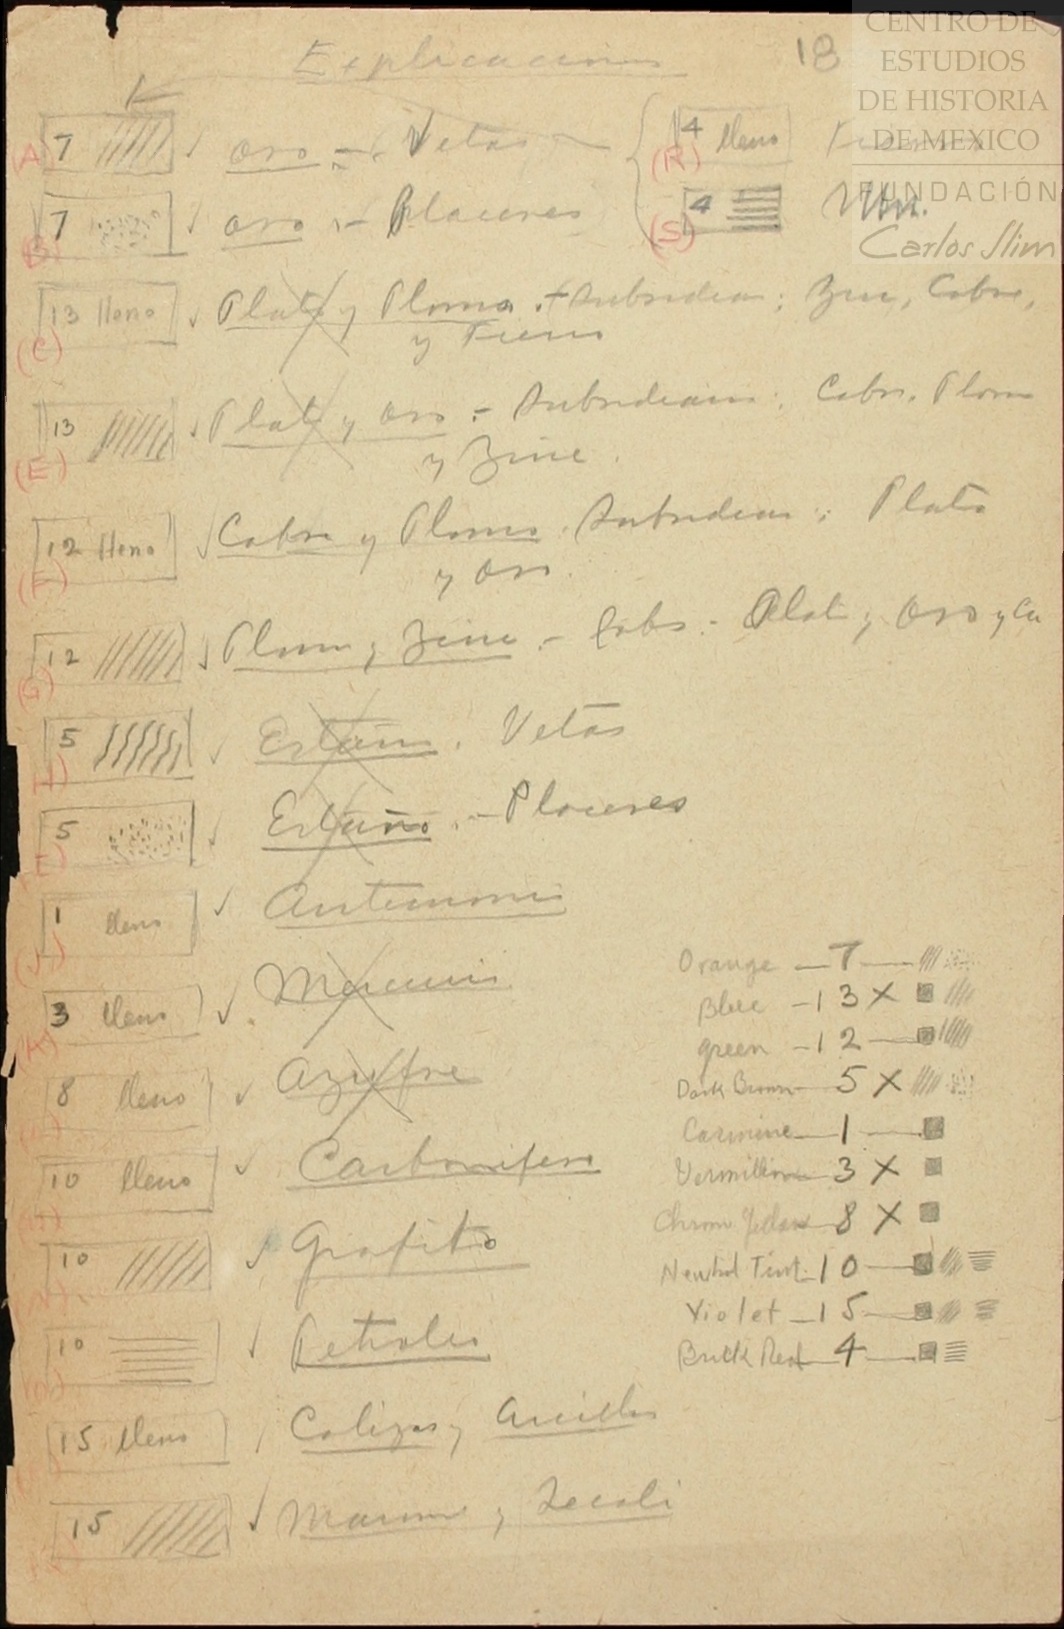 Explicaciones
18
(A) 7 oro = Vetas
(R) 4 lleno
(B) 7 oro :- Placeres
(S) 4
(C) 13 lleno Plata y Plomo .- Subsidiarios: Zinc, Cobre,
y Fierro
(E) 13 Plata y oro :- Subsidiarios: Cobre, Plomo
y Zinc.
(F) 12 lleno Cobre y Plomo. Subsidiarios: Plata
y oro.
(G) 12 Plomo y Zinc - Plata y Oro y Cu
5 Estaño. Vetas
5 Estaño .- Placeres
(J) 1 lleno Antimonio
(K) 3 lleno Mercurio
8 lleno Azufre
10 lleno Carbonifero
10 Grafito
10 Petroleo
15 lleno Calizas y Arcillas
15 Marmol y Tecali
Orange - 7
Blue - 13 X
green - 12
Dark Brown 5 X
Carmine 1
Vermillion 3 X
Chrom Yellow 8 X
Neutral Tint. 10
Violet - 15
Brick Red 4
CENTRO DE
ESTUDIOS
DE HISTORIA
DE MEXICO
FUNDACIÓN
Carlos Slim